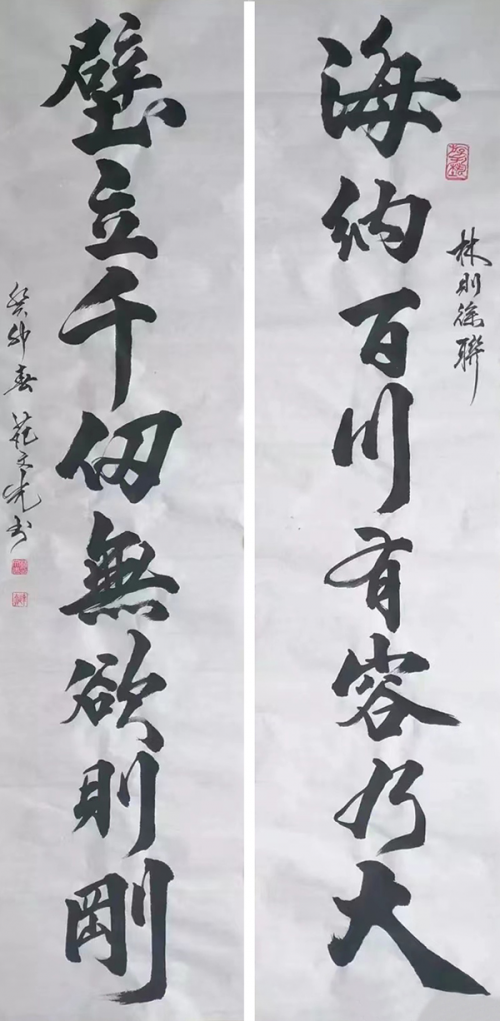 海納百川有容乃大
林則徐聯
壁立千仞無欲則剛
癸卯春 範文光書